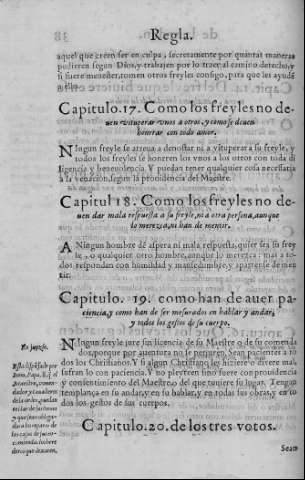 Regla.
aquel que creen ser en culpa, secretamente por quantas maneras
pudieren segun Dios, y trabajen por lo traer al camino derecho, y
si fuere menester, tomen otros freyles consigo, para que les ayude
a esso.
Capitulo.17. Como los freyles no de-
uen vituperar vnos a otros, y como se deuen
honrrar con todo amor.
Ningun freyle se atreua a denostar ni a vituperar a su freyle, y
todos los freyles se honrren los vnos a los otros con toda di
ligencia y beneuolencia. Y puedan tener qualquier cosa necessaria
a la venacion, segun la prouidencia del Maestre.
Capitul 18. Como los freyles no de-
uen dar mala respuesta a su freyle, ni a otra persona, aunque
lo merezca, ni han de mentir.
A Ningun hombre dé aspera ni mala respuesta, quier sea su frey
le, o qualquier otro hombre, aunque lo merezca: mas a to-
dos respondan con humildad y mansedumbre, y apartense de men
tir.
Capitulo. 19. como han de auer pa-
ciencia, y como han de ser mesurados en hablar y andar,
y todos los gestos de su cuerpo.
Ningun freyle jure sin licencia de su Maestre o de se comenda
dor, porque por auentura no le perjuren. Sean pacientes a to
dos los Christianos. Y si algun Christiano les hiziere o dixere mal,
sufran lo con paciencia. Y no pleyteen sino fuere con prouidencia
y consentimiento del Maestre, o del que tuuiere su lugar. Tengan
templança en su andar, y en su hablar, y en todas sus obras, y en to
dos los gestos de sus cuerpos.
Capitulo.20. de los tres votos.
Sean